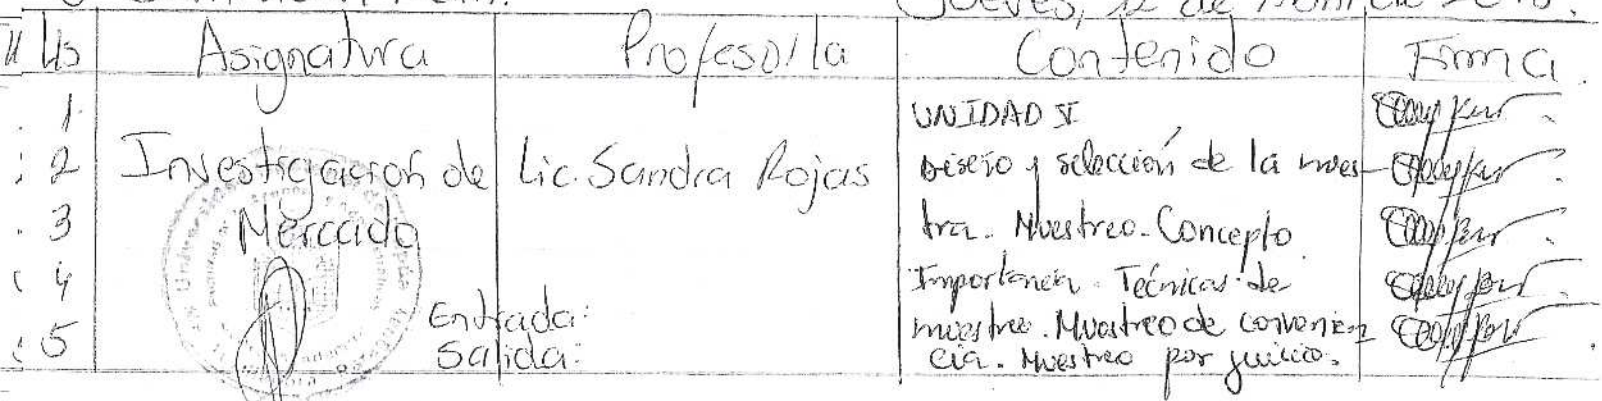 Jueves, 12 de
Hs Asignatura Profesor/la Contenido Firma.
1 UNIDAD V
2 Investigación de Lic. Sandra Rojas Diseño y selección de la mues-
3 Mercado tra. Muestreo. Concepto
4 Importancia. Técnicas de
Entrada: muestreo. Muestreo de convenien
5 Salida: cia. Muestreo por juicio.